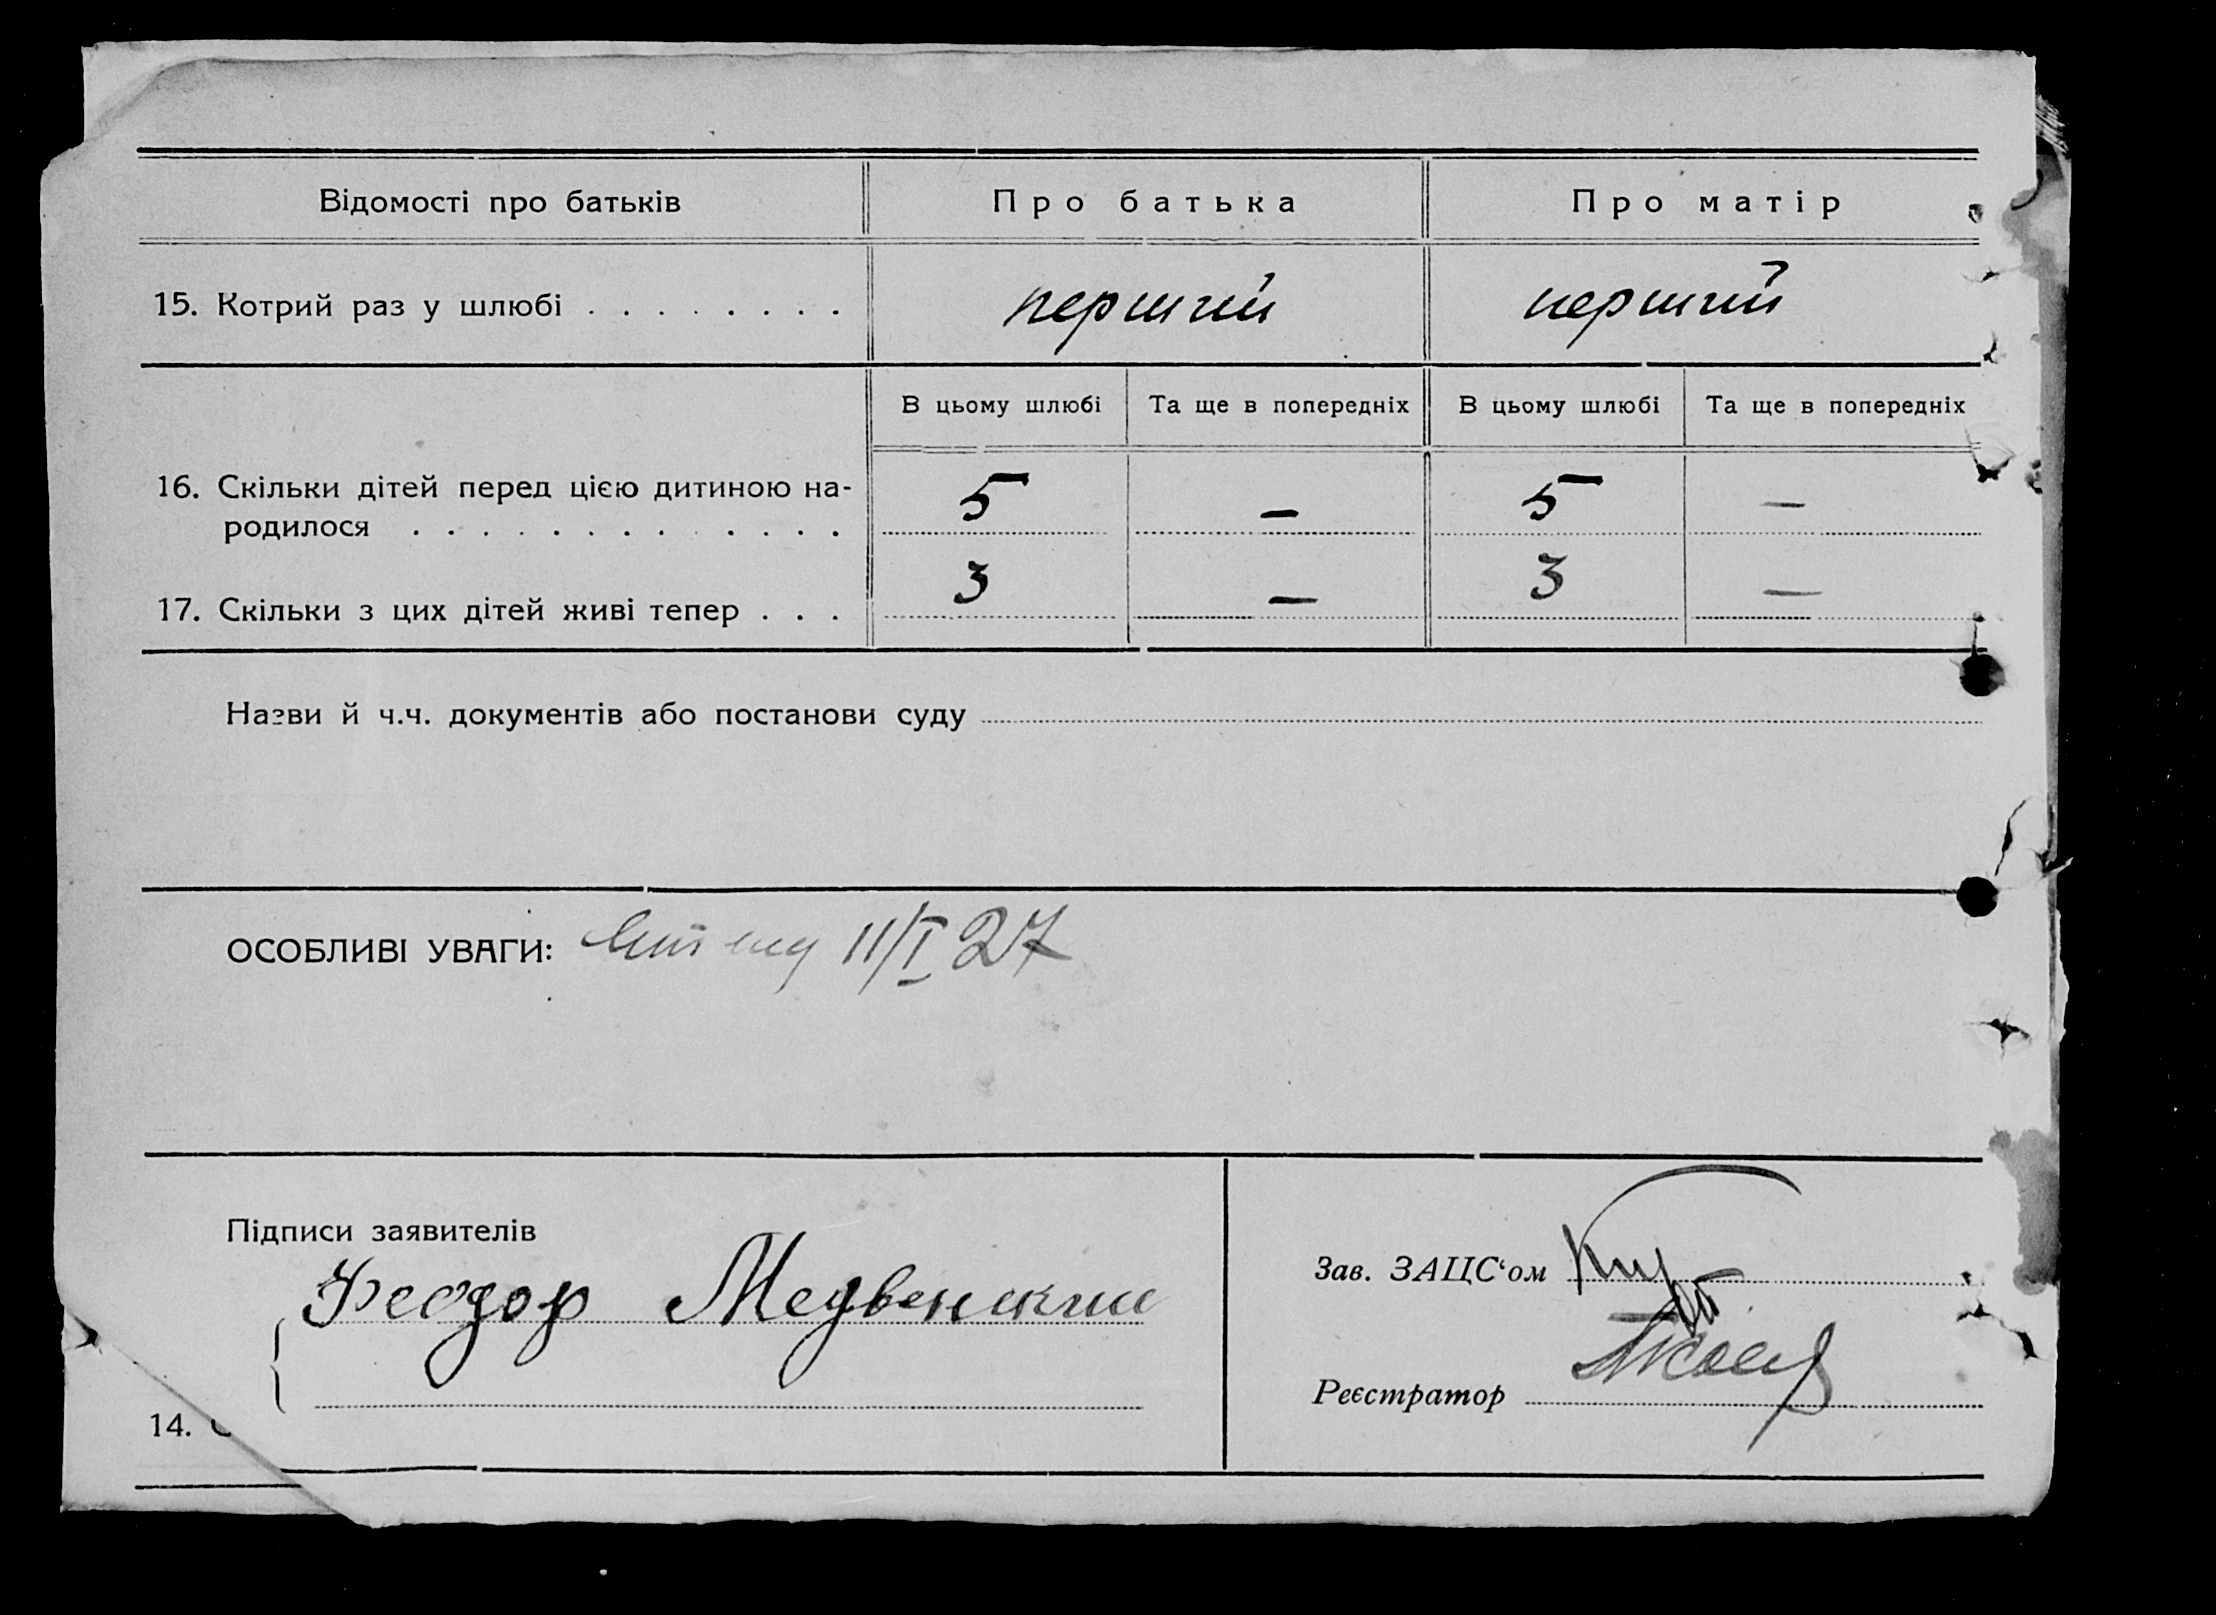 Відомості про батьків Про батька Про матір
15. Котрий раз у шлюбі . . . . . . . . перший перший
В цьому шлюбі Та ще в попередніх В цьому шлюбі Та ще в попередніх
16. Скільки дітей перед цією дитиною на-
родилося . . . . . . . . . . . . . 5 — 5 —
17. Скільки з цих дітей живі тепер . . . 3 — 3 —
Назви й ч.ч. документів або постанови суду
ОСОБЛИВІ УВАГИ: 11/I 27
Підписи заявителів
Феодор
Зав. ЗАЦС‘ом
Реєстратор
14.